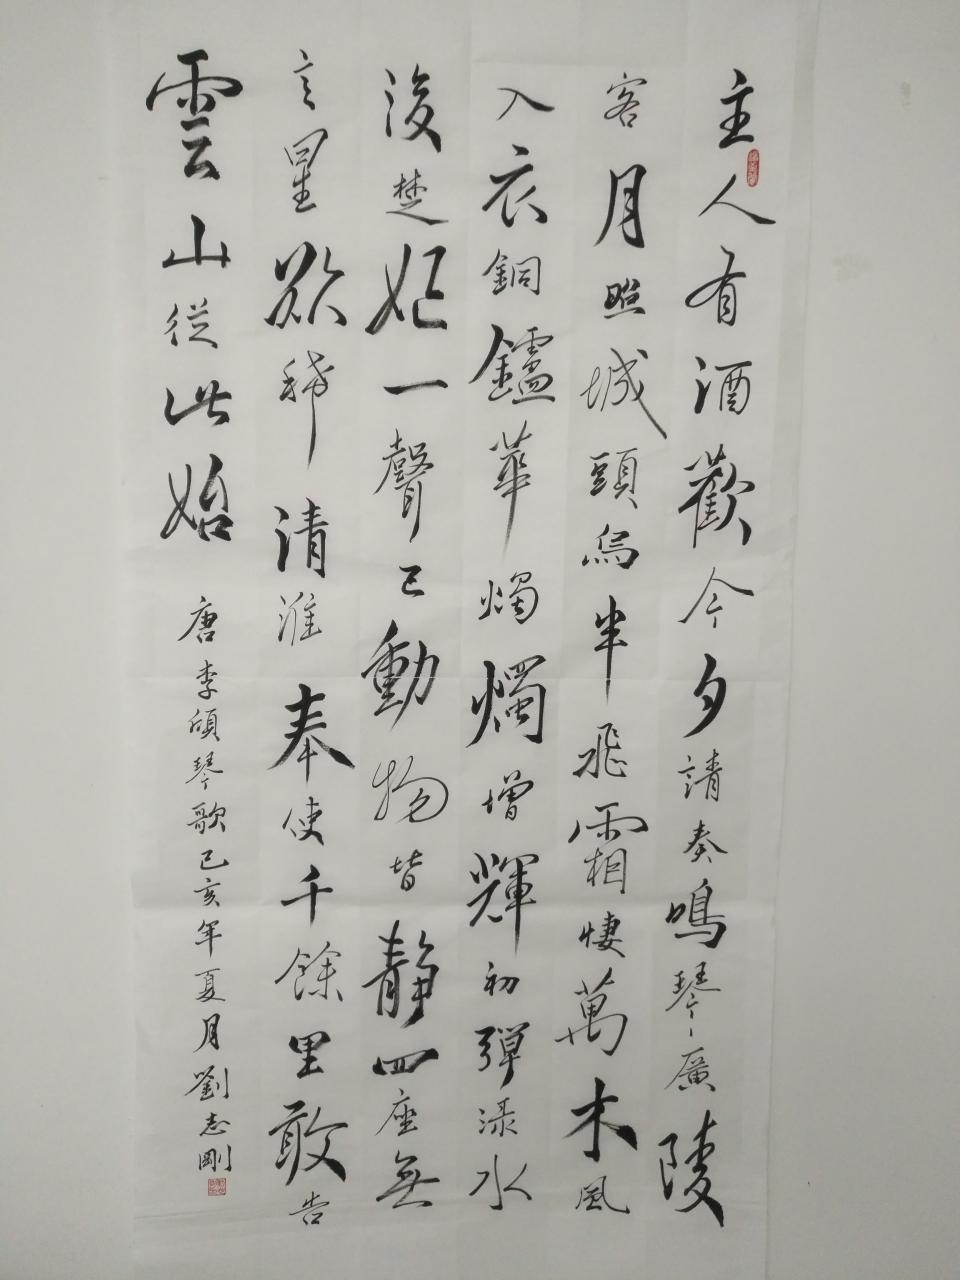 主人有酒歡今夕請奏鳴琴廣陵
客月照城頭烏半飛霜悽萬木風
入衣銅鑪華燭燭增輝初彈淥水
後楚妃一聲已動物皆靜四座無
言星欲稀清淮奉使千餘里敢告
雲山從此始
唐李頎琴歌己亥年夏月劉志剛